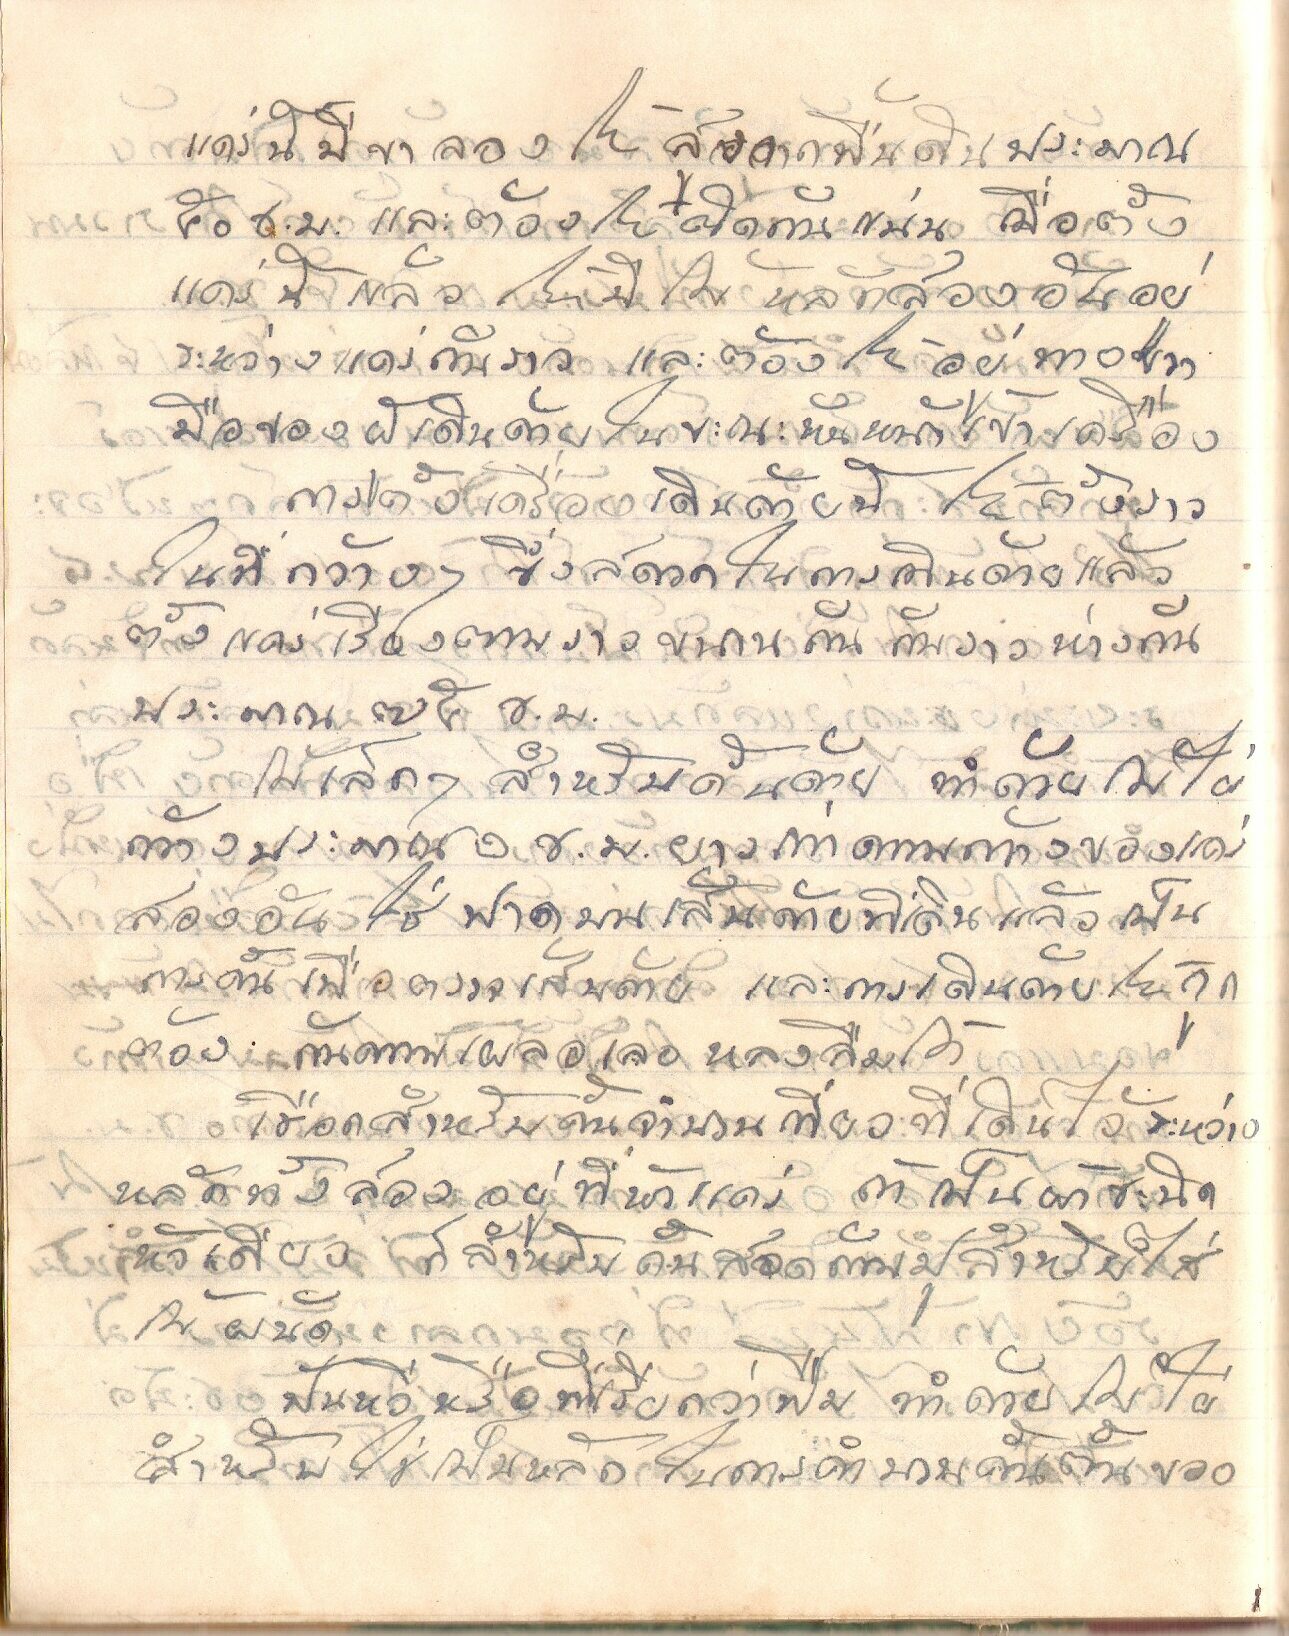 แคร่นี้มีขาลองให้สูงจากพื้นดินประมาณ
๕๐ ซ.ม. และต้องให้ติดกันแน่น เมื่อตั้ง
แคร่นี้แล้ว ให้มีไม้หลักสองอันอยู่
ระหว่างแคร่กับราว และต้องให้อยู่ทางขวา
มือของผู้เดินด้ายในขะณะหันหน้าเข้าเครื่อง
การตั้งเครื่องเดินด้ายนี้ ให้ตั้งราว
ในที่กว้างๆ ซึ่งสดวกในการเดินด้ายแล้ว
ตั้งแคร่เรียงตามราวขนานกันกับราวห่างกัน
ประมาณ ๗๕ ซ.ม.
ไม้เล็กๆ สำหรับคั้นด้าย ทำด้วยไม้ไผ่
กว้างประมาณ ๑ ซ.ม. ยาวเท่าความกว้างของแคร่
สองอัน ใช้พาดบนเส้นด้ายที่เดินแล้วเป็น
การคั้นเพื่อตรวจเส้นด้าย และการเดินด้ายให้ถูก
ต้อง กันความเผลอเลอหลงลืมได้
เชือกสำหรับคั้นจำนวนเที่ยวที่เดินไว้ระหว่าง
หลักทั้งสองอยู่ที่หัวแคร่ ถ้าเป็นผ้าชะนิด
หัวเดียว ก็สำหรับคั้นสอดกับมูสำหรับใส่
ไม้ผนัด
ฟันหวีหรือที่เรียกว่าฟืม ทำด้วยไม้ไผ่
สำหรับใช้เป็นหลักในการคำนวนต้นด้ายของ